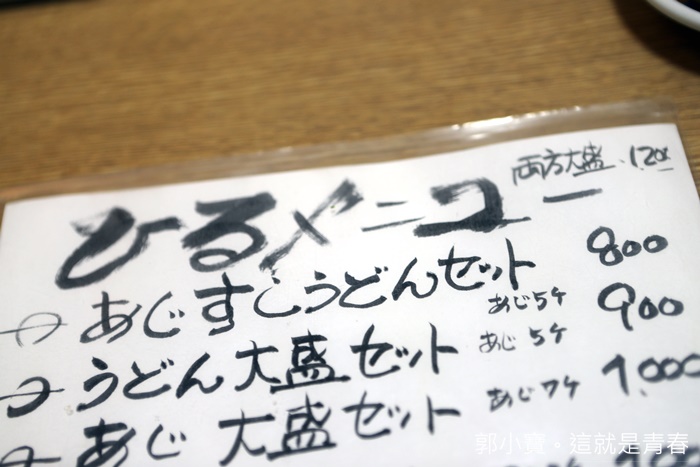 両方大盛 1200
ひるメニュー
あじすしうどんセット 800
あじ5ケ
うどん大盛セット 900
あじ5ケ
あじ大盛セット 1,000
あじ7ケ
郭小寶。這就是青春